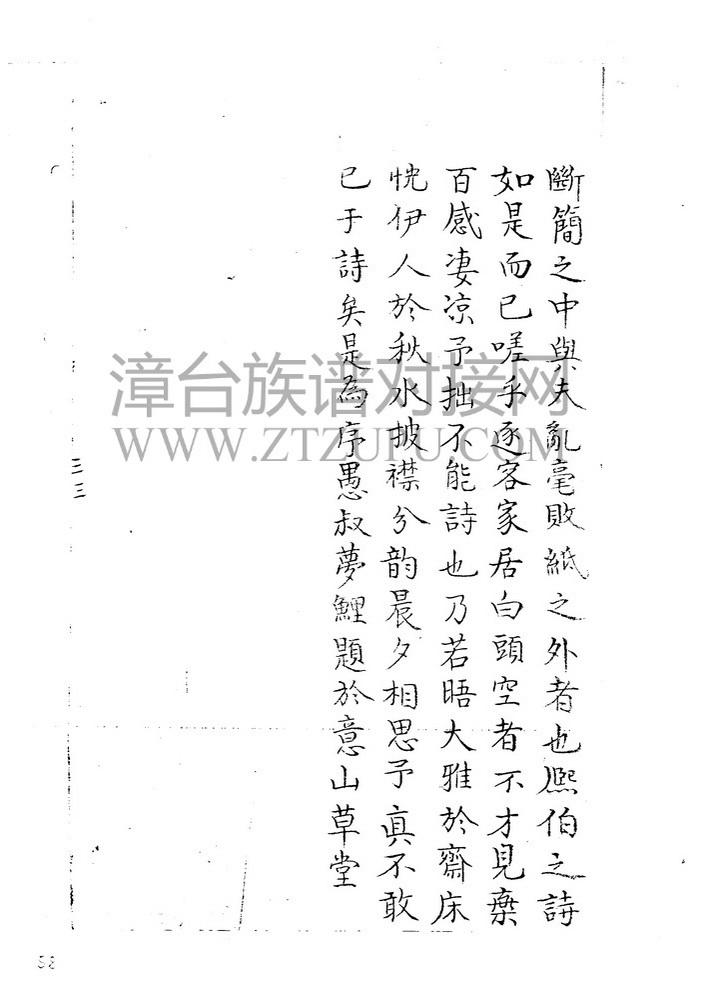 斷簡之中與夫亂毫敗紙之外者也熈伯之詩
如是而已嗟乎逐客家居白頭空者不才見棄
百感凄凉予拙不能詩也乃若晤大雅於齋床
恍伊人於秋水披襟分韵晨夕相思予真不敢
已于詩矣是為序愚叔夢鯉題於意山草堂
三三
58
漳台族谱对接网
WWW.ZTZUPU.COM